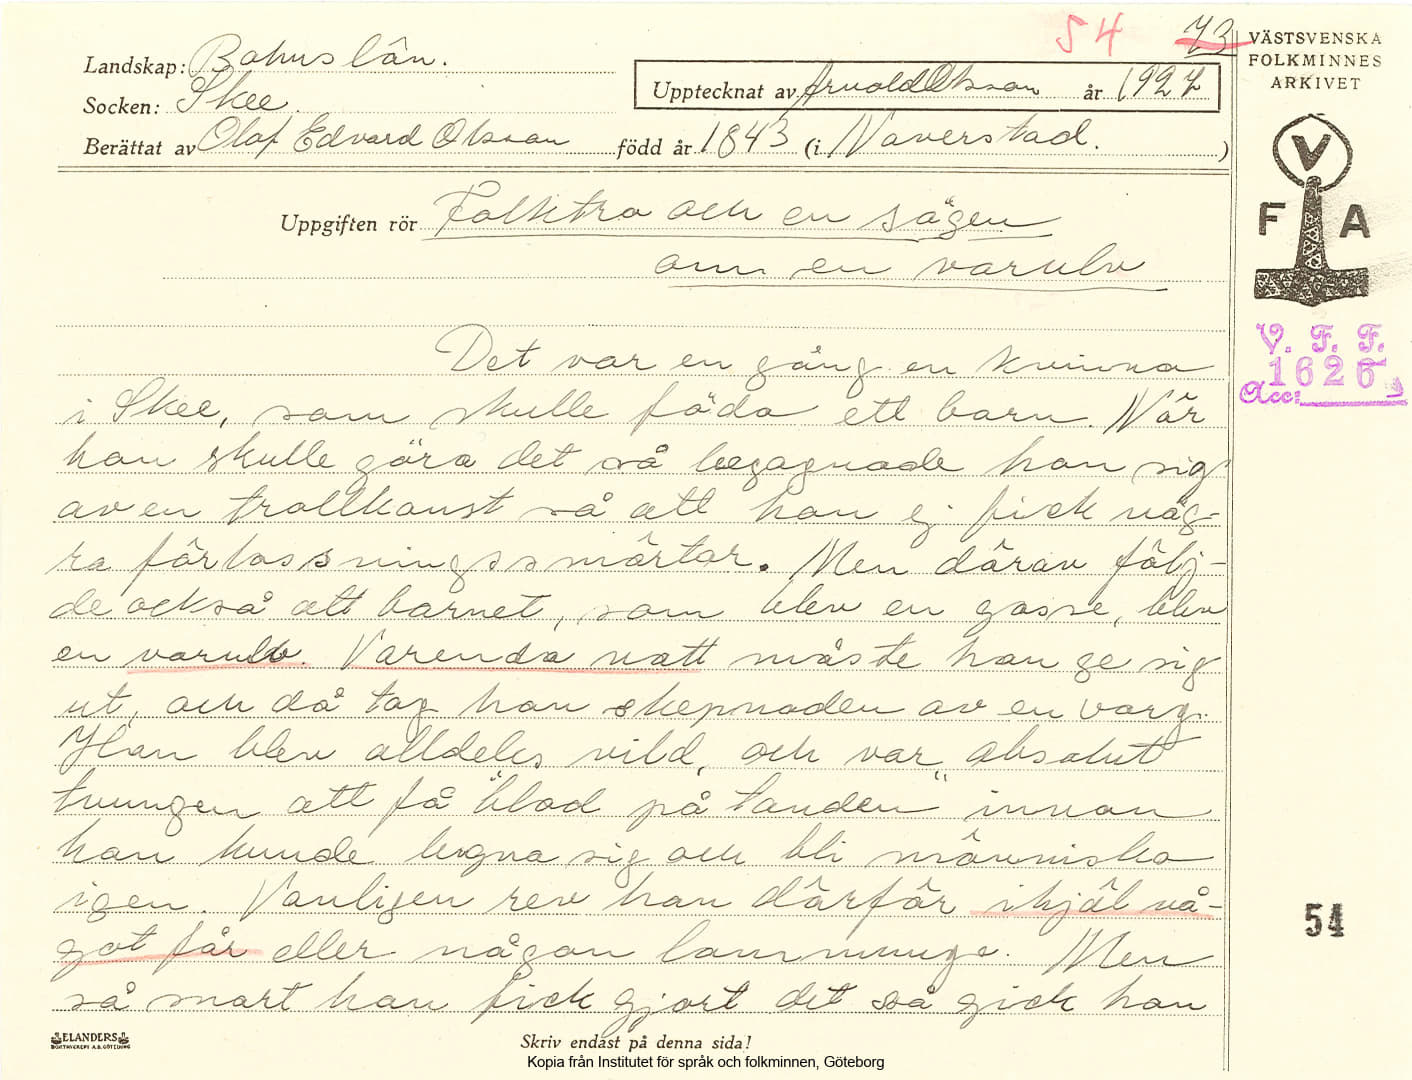 54 73
VÄSTSVENSKA
FOLKMINNES
ARKIVET
Landskap: Bohuslän.
Socken: Skee.
Upptecknat av Arnold Olsson år 1927
Berättat av Olof Edvard Olsson född år 1843 (i Naverstad. )
Uppgiften rör Folktro och en sägen
om en varulv
V
F A
V. F. F.
1626
Acc:
Det var en gång en kvinna
i Skee, som skulle föda ett barn. När
hon skulle göra det så begagnade hon sig
av en trollkonst så att hon ej fick någ-
ra förlossningssmärtor. Men därav följ-
de också att barnet, som blev en gosse, blev
en varulv. Varenda natt måste han ge sig
ut, och då tog han skepnaden av en varg.
Han blev alldeles vild, och var absolut
tvungen att få "blod på tanden" innan
han kunde lugna sig och bli människa
igen. Vanligen rev han därför ihjäl nå-
got får eller någon lammunge. Men
så snart han fick gjort det så gick han
54
ELANDERS
BOKTRYCKERI A.B. GÖTEBORG
Skriv endast på denna sida!
Kopia från Institutet för språk och folkminnen, Göteborg